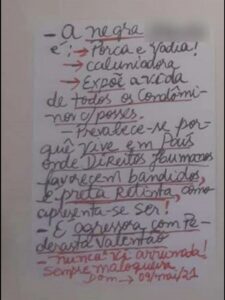 - A negra
é; → Porca e Vadia!
→ caluniadora
→ Expõe a vida
de todos os Condômi-
nos c/posses.
- Prevalece-se por-
que vive em País
onde Direitos Humanos
favorecem bandidos,
e preta Retinta, como
apresenta-se ser!
- E agressora com Pe-
derasta Valentão
- Nunca vi arrumada!
sempre maloqueira
Dom → 09/mai/21